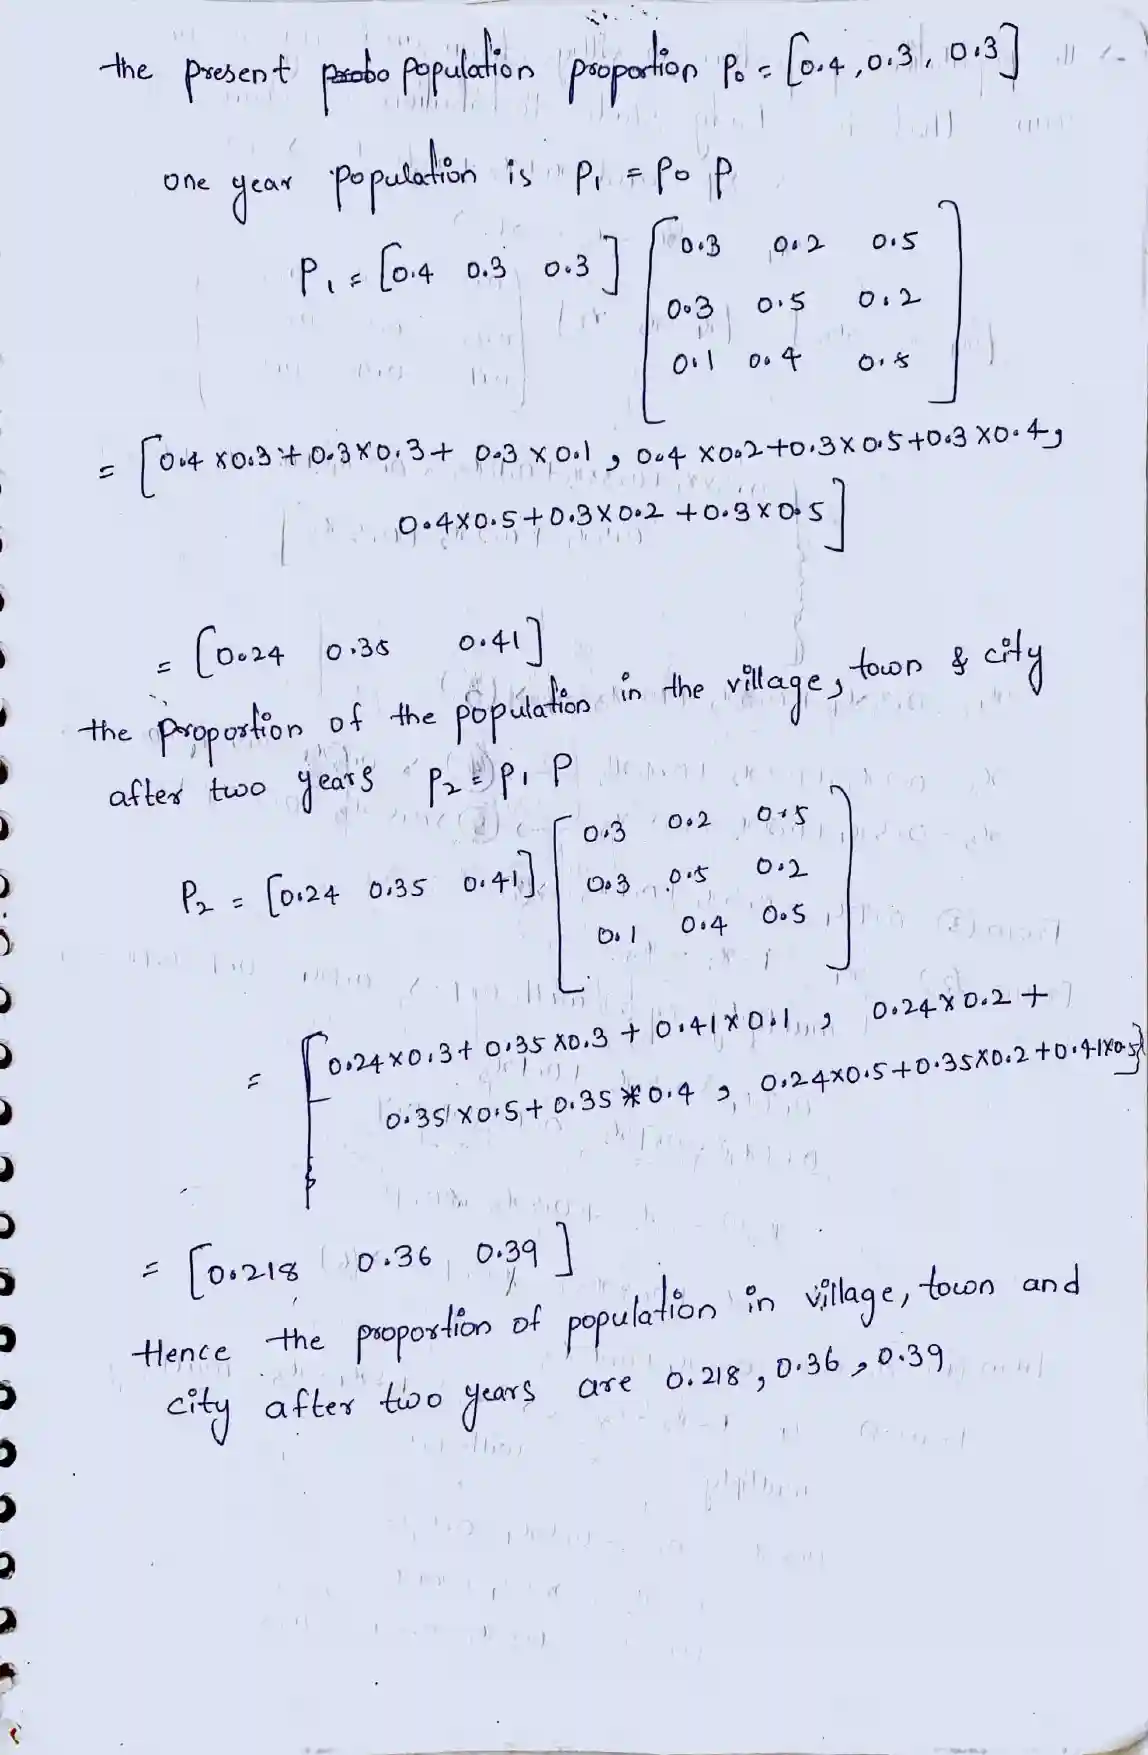 the present probo population proportion P₀ = [0.4, 0.3, 0.3]
one year population is P₁ = P₀ P
P₁ = [0.4 0.3 0.3] [0.3 0.2 0.5
0.3 0.5 0.2
0.1 0.4 0.5]
= [0.4 x0.3+0.3x0.3+ 0.3 x0.1, 0.4 x0.2+0.3x0.5+0.3 x0.4,
0.4x0.5+0.3x0.2 +0.3x0.5]
= [0.24 0.35 0.41]
the proportion of the population in the village, town & city
after two years P₂ = P₁ P
P₂ = [0.24 0.35 0.41] [0.3 0.2 0.5
0.3 0.5 0.2
0.1 0.4 0.5]
= [0.24x0.3+ 0.35 x0.3 + 0.41x0.1, 0.24x0.2 +
0.35x0.5+0.35*0.4, 0.24x0.5+0.35x0.2+0.41x0.5]
= [0.218 0.36 0.39]
Hence the proportion of population in village, town and
city after two years are 0.218, 0.36, 0.39